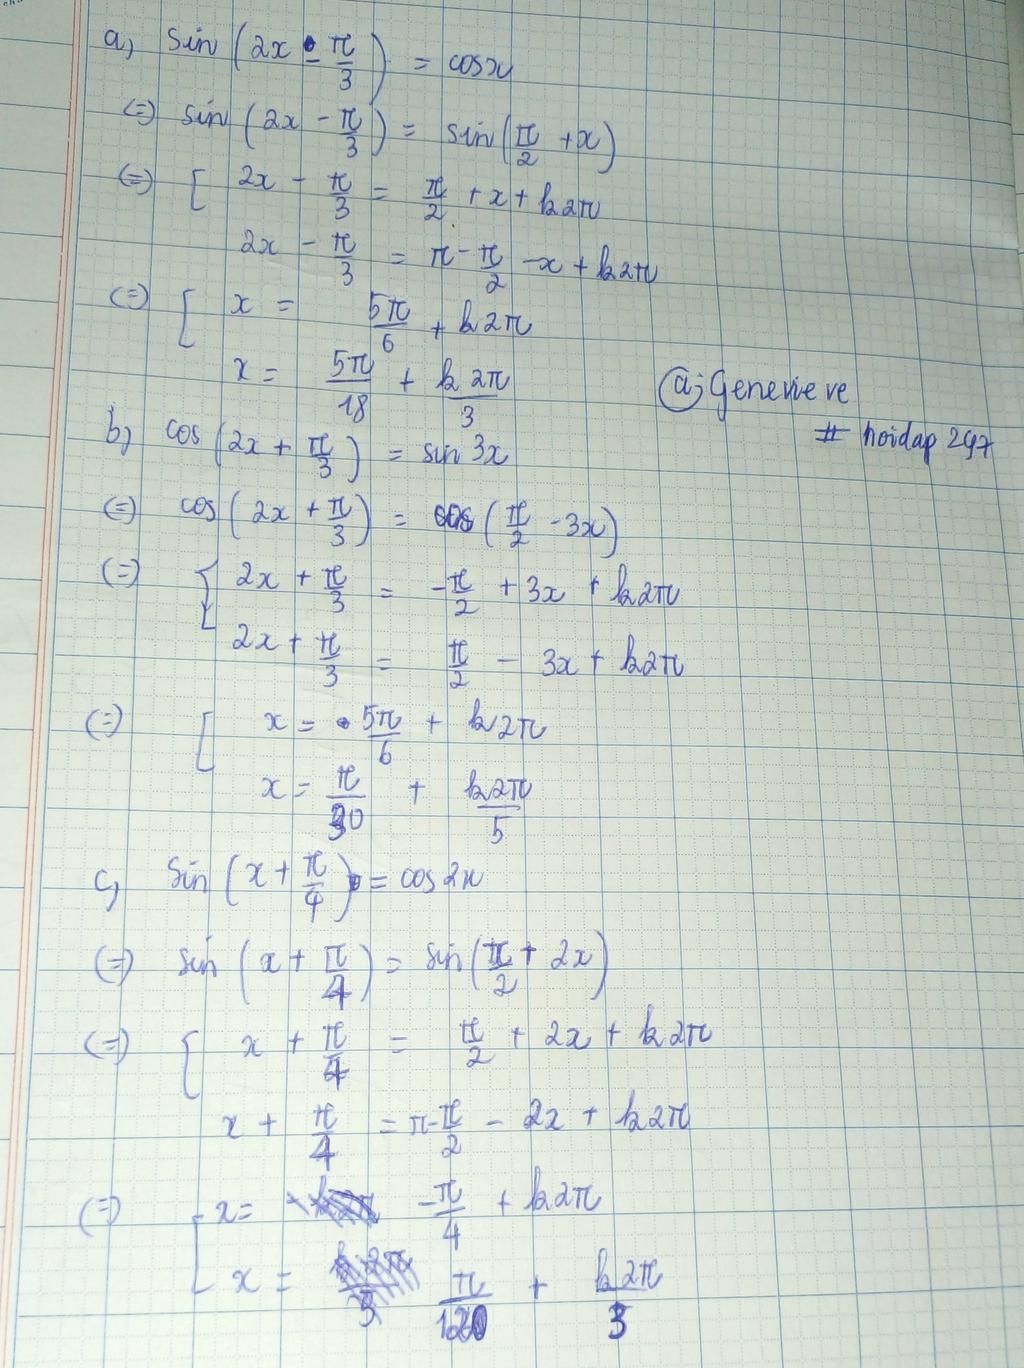 a, sin(2x - π/3) = cosx
(=) sin(2x - π/3) = sin(π/2 + x)
(=) [ 2x - π/3 = π/2 + x + k2π
2x - π/3 = π - π/2 - x + k2π
(=) [ x = 5π/6 + k2π
x = 5π/18 + k2π/3
@; Genevieve
# hoidap 247
b, cos(2x + π/3) = sin 3x
(=) cos(2x + π/3) = cos(π/2 - 3x)
(=) { 2x + π/3 = -π/2 + 3x + k2π
2x + π/3 = π/2 - 3x + k2π
(=) [ x = 5π/6 + k2π
x = π/30 + k2π/5
c, sin(x + π/4) = cos 2x
(=) sin(x + π/4) = sin(π/2 + 2x)
(=) { x + π/4 = π/2 + 2x + k2π
x + π/4 = π - π/2 - 2x + k2π
(=) [ x = -π/4 + k2π
x = π/12 + k2π/3